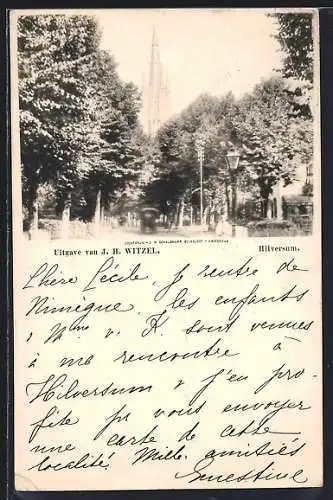 Uitgave van J. H. WITZEL.
Hilversum.
Chère Cécile, je rentre de
Nimègue, les enfants
& Mme v. K. sont venues
à ma rencontre à
Hilversum & j'en pro-
fite pr vous envoyer
une carte de cette
localité. Mille amitiés
Ernestine